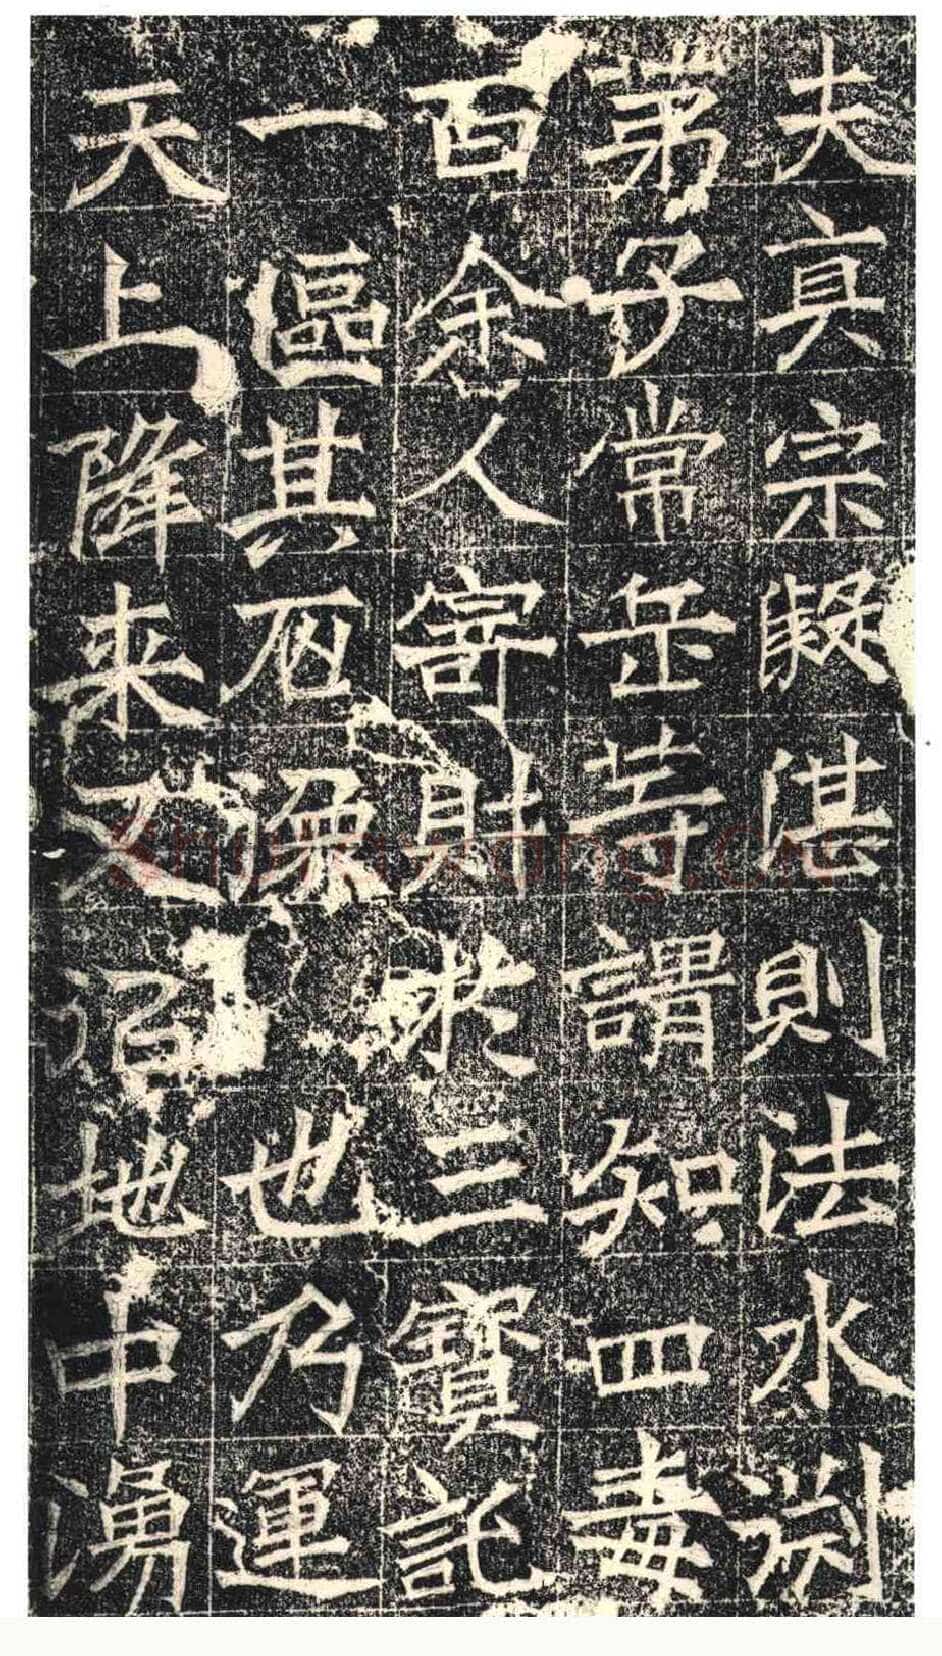 夫真宗凝湛則法水渕
弟子常岳等謂知四毒
百余人寄財於三寶託
一區其石像也乃運
天上降來又似地中湧